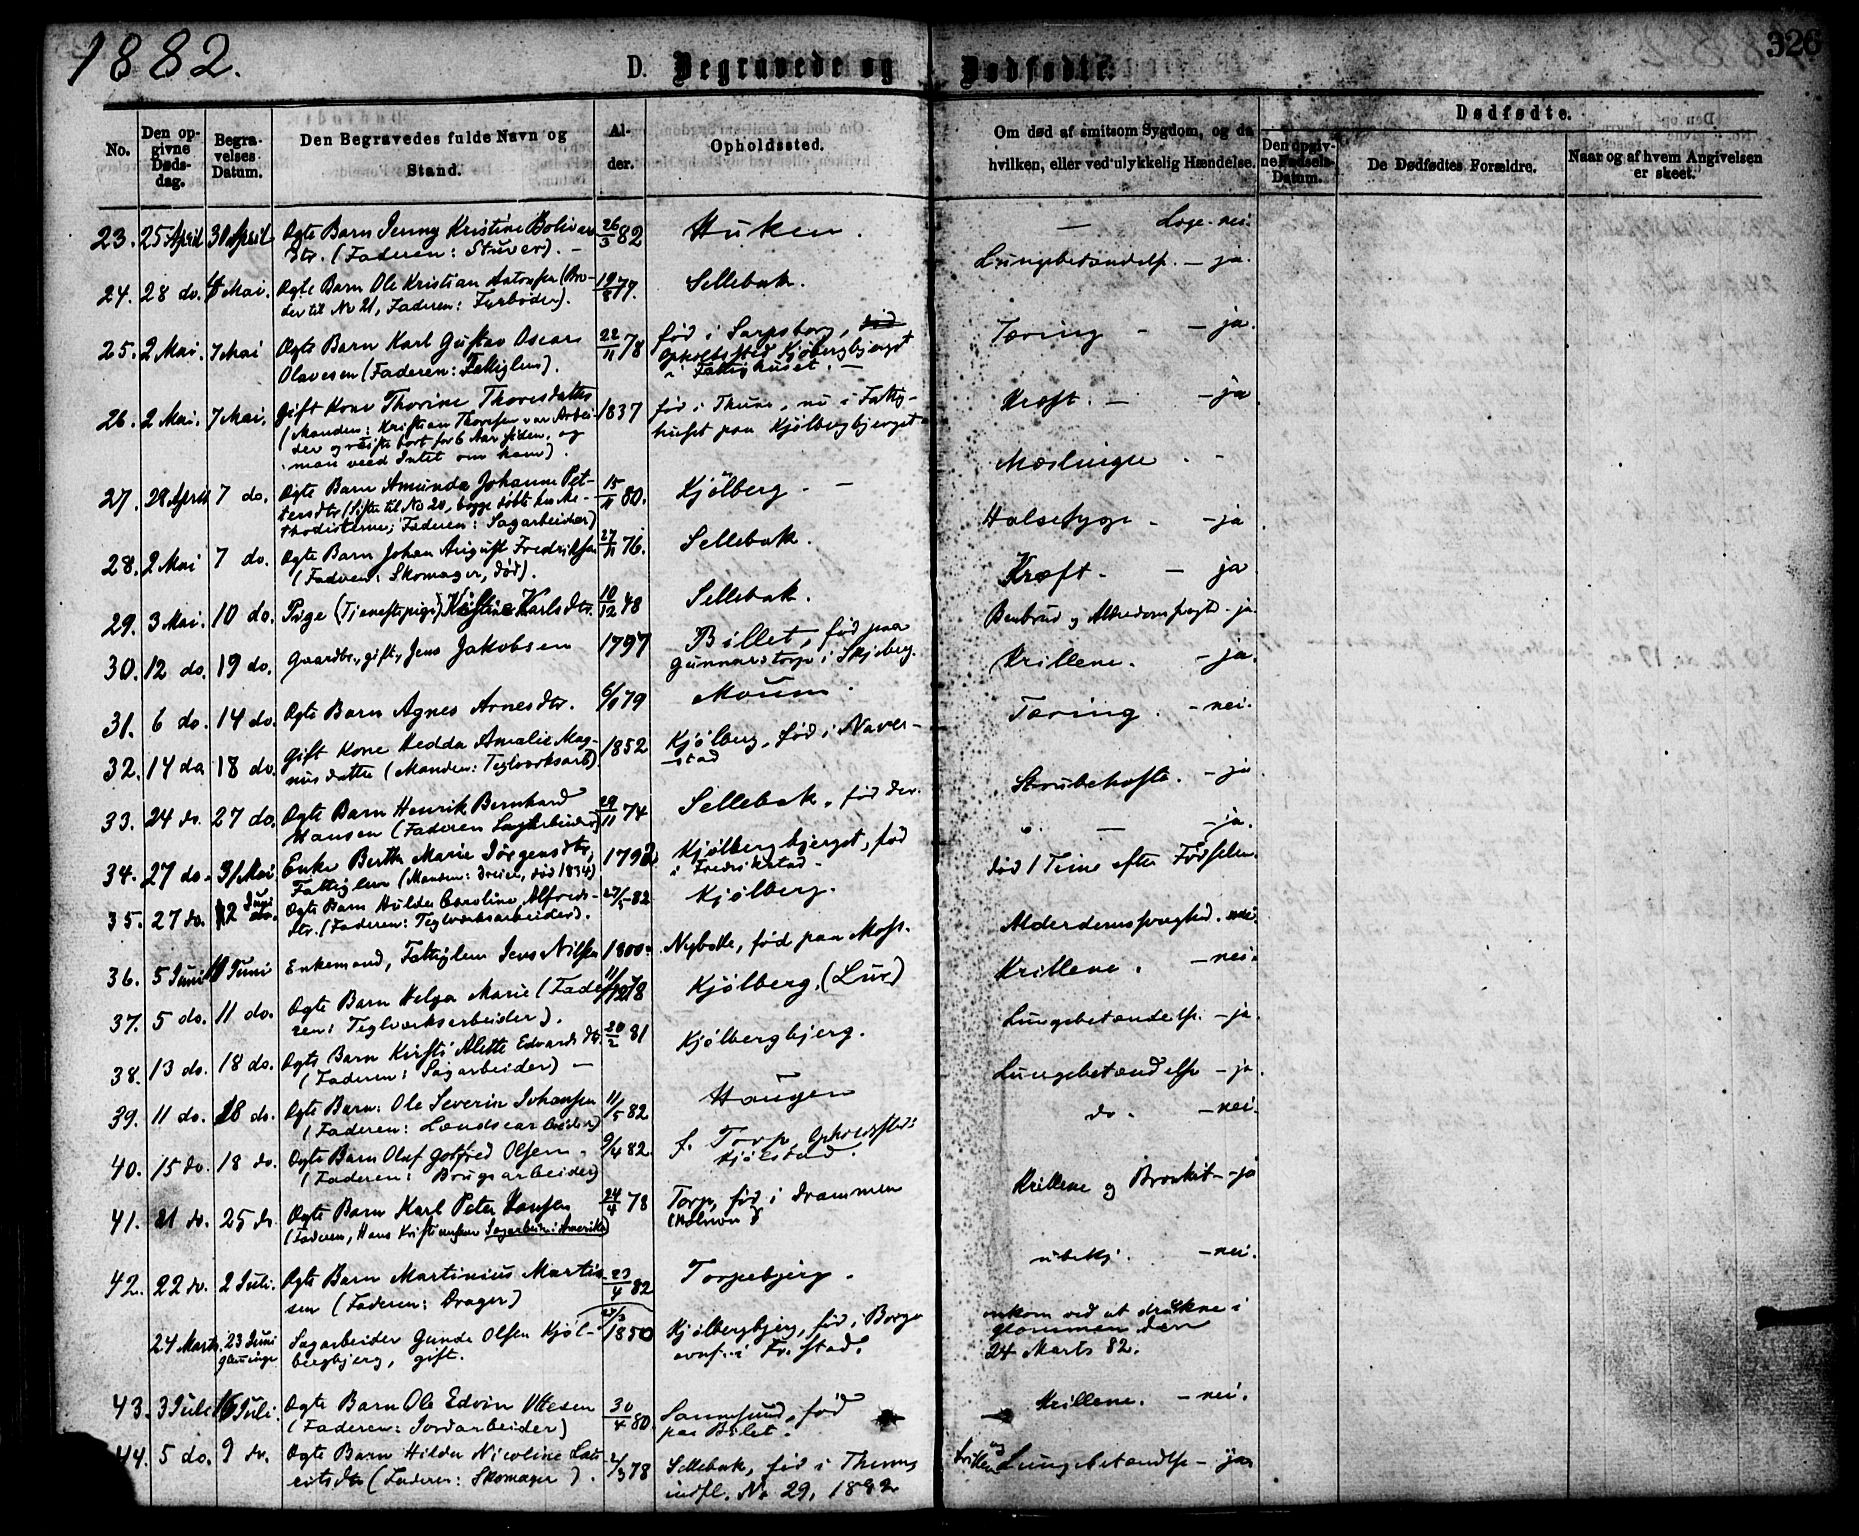 1882.
D. Begravede og Dødfødte.
326
No.
Den opgivne Dødsdag.
Begravelses Datum.
Den Begravedes fulde Navn og Stand.
Alder.
Opholdssted.
Om død af smitsom Sygdom, og da hvilken, eller ved ulykkelig Hændelse.
Dødfødte.
Den opgivne Fødsels-Datum.
De Dødfødtes Forældre.
Naar og af hvem Angivelsen er skeet.
23. 25 April 30 April Ægte Barn Jenny Kristine Bolivar 26/3 82 Huken. — nei.
dtr. (Faderen: Stuver). —
24. 28 do. 4 Mai. Ægte Barn Ole Kristian Antonsen (Bro- 19/8 77. Sellebak. Lungebetændelse. — ja.
der til No 21, Faderen: Fyrbøder).
25. 2 Mai. 7 Mai Ægte Barn Karl Gustav Oscar 22/11 78 født i Sarpsborg, Tæring — ja.
Olavesen (Faderen: Fattiglem). Opholdssted Kjølbergbjerget
i Fattighuset. —
26. 2 Mai. 7 Mai. Gift Kone Thorine Thoresdatter 1837 fød i Thune, nu i Fattig- Kræft. — ja
(Manden: Kristian Thoresen var Arbei- huset paa Kjølbergbjerget
der og reiste bort for 6 Aar siden, og
man veed Intet om ham).
27. 29 April 7 do. Ægte Barn Amunda Johanne Pet- 15/11 80. Kjølberg. — Mæslinger. -
tersdtr (Søster til No 20, begge døbte hos Me-
thodisterne; Faderen: Sagarbeider)
28. 2 Mai 7 do. Ægte Barn Johan August Fredriksen 27/11 76. Sellebak. Halsesyge — ja
(Faderen: Skomager, død).
29. 3 Mai. 10 do. Pige (Tjenestepige) Kristine Karlsdtr. 10/12 48 Sellebak. Kræft. — ja
30. 12 do. 19 do. Gaardbr., gift, Jens Jakobsen 1797 Billet, fød paa Benbrud og Alderdomssvagh. - ja.
Gunnarstorp i Skjeberg.
31. 6 do. 14 do. Ægte Barn Agnes Arnesdtr. 79 Moum. Krillene. — ja.
32. 14 do 18 do. Gift Kone Hedda Amalie Mag- 1852 Kjølberg, fød i Naver- Tæring. — nei.
nusdatter (Manden: Teglværksarb.) stad
33. 24 do. 27 do. Ægte Barn Henrik Bernhard 29/11 74 Sellebak, fød der. Strubehoste. — ja
Hansen (Faderen Sagarbeider)
34. 27 do. 31 Mai Enke Berthe Marie Jørgensdtr, Kjølbergbjerget, fød — ja.
Fattiglem (Manden: Dreier, død 1834) i Fredrikstad.
35. 27 do. 2 Juni Ægte Barn Hulda Caroline Alfreds- 27/5 82 Kjølberg. død 1 Time efter Fødselen.
dtr. (Faderen: Teglværksarbeider).
36. 5 Juni 11 Juni Enkemand, Fattiglem Jens Nilsen 1800. Nybølle, fød paa Moss. Alderdomssvaghed. nei.
37. 5 do. 11 do. Ægte Barn Helga Marie (Fade- 11/12 78 Kjølberg, (Lur) Krillene. — nei.
ren: Teglværksarbeider).
38. 13 do. 18 do. Ægte Barn Kirsti Alette Edvardsdtr 20/2 81 Kjølbergbjerg. Lungebetændelse. — ja.
(Faderen: Sagarbeider) —
39. 11 do. 18 do. Ægte Barn: Ole Severin Johansen 11/5 82 Haugen Lungebetændelse — ja.
(Faderen: Landsearbeider)
40. 15 do. 18 do. Ægte Barn Oluf Gotfred Olsen. 9/4 82 f. Torp, Opholdssted: do. — nei.
(Faderen: Brugsarbeider)
41. 21 do. 25 do. Ægte Barn Karl Peter Hansen 24/4 78 Torp, fød i Drammen Krillene og Bronkit — ja
(Faderen, Hans Kristiansen Sagarbeider i Amerika)
42. 22 do. 2 Juli. Ægte Barn Martinius Martin- 23/4 82 Torpebjerg. ubekj. — nei.
sen (Faderen: Drager)
24 Marts. 23 Juni Sagarbeider Gunder Olsen Kjøl- 1850 Kjølbergbjerg, fød i Borge omkom ved at drukne i
bergbjerg, gift. Glommen den
24 Marts 82.
43. 3 Juli 16 Juli. Ægte Barn Ole Edvin Ottesen 30/4 80. Sannesund, fød Krillene. — nei.
(Faderen: Jordarbeider) paa Bilet.
44. 5 do. 9 do. Ægte Barn Hilda Nicoline Lau- 2/3 78 Sellebak, fød i Thune, Krillene og Lungebetændelse — ja
ritsdtr (Faderen: Skomager). indfl. No 29, 1882